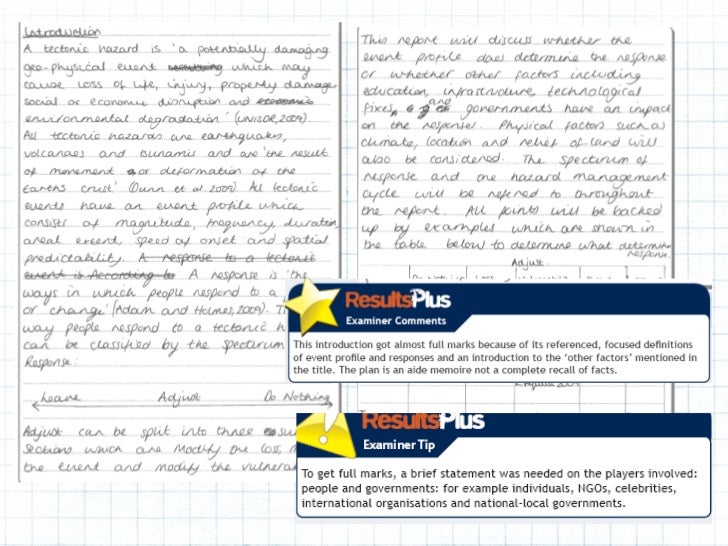 Introduction
A tectonic hazard is 'a potentially damaging
geo-physical event which may
cause loss of life, injury, property damage
social or economic disruption and economic
environmental degradation' (UNISDR, 2009).
All tectonic hazards are earthquakes,
volcanoes and tsunamis and are 'the result
of movement or deformation of the
Earths crust' (Dunn et al 2009). All tectonic
events have an event profile which
consists of magnitude, frequency, duration,
areal extent, speed of onset and spatial
predictability. A response to a tectonic
event is According to A response is 'the
ways in which people respond to a
or change' (Adam and Holmes, 2009). T
way people respond to a tectonic h
can be classified by the spectrum
Response:
Leave Adjust Do Nothing
Adjust can be split into three su
sections which are Modify the loss,
the event and modify the vulnera
This report will discuss whether the
event profile does determine the response
or whether other factors including
education, infrastructure, technological
fixes, and governments have an impact
on the response. Physical factors such as
climate, location and relief of land will
also be considered. The spectrum of
response and the hazard management
cycle will be referred to throughout
the report. All points will be backed
up by examples which are shown in
the table below to determine what determine
response.
Adjust.
ResultsPlus
Examiner Comments
This introduction got almost full marks because of its referenced, focused definitions
of event profile and responses and an introduction to the 'other factors' mentioned in
the title. The plan is an aide memoire not a complete recall of facts.
ResultsPlus
Examiner Tip
To get full marks, a brief statement was needed on the players involved:
people and governments: for example individuals, NGOs, celebrities,
international organisations and national-local governments.